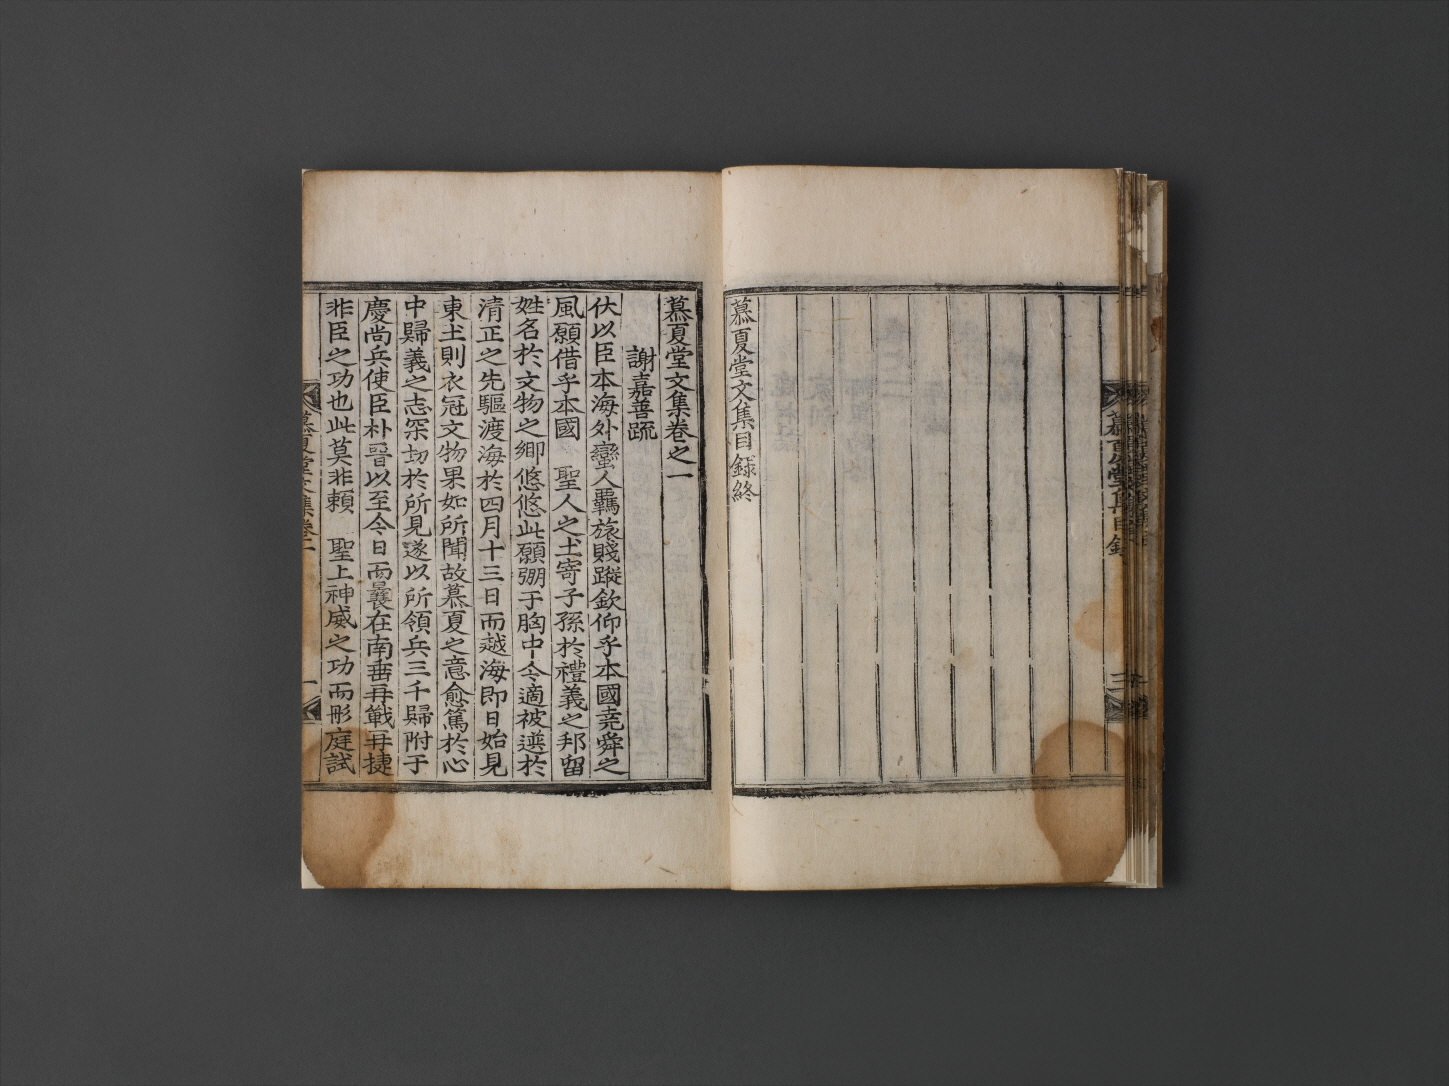 慕夏堂文集目録終
慕夏堂文集卷之一
謝嘉善疏
伏以臣本海外蠻人羈旅賤蹤欽仰乎本國堯舜之
風願借乎本國 聖人之土寄子孫於禮義之邦留
姓名於文物之鄉悠悠此願弸于胸中今適被選於
清正之先驅渡海於四月十三日而越海即日始見
東土則衣冠文物果如所聞故慕夏之意愈篤於心
中歸義之志深切於所見遂以所領兵三千歸附于
慶尚兵使臣朴晉以至今日而曩在南番再戰再捷
非臣之功也此莫非賴 聖上神威之功而彤庭試
慕夏堂文集卷一